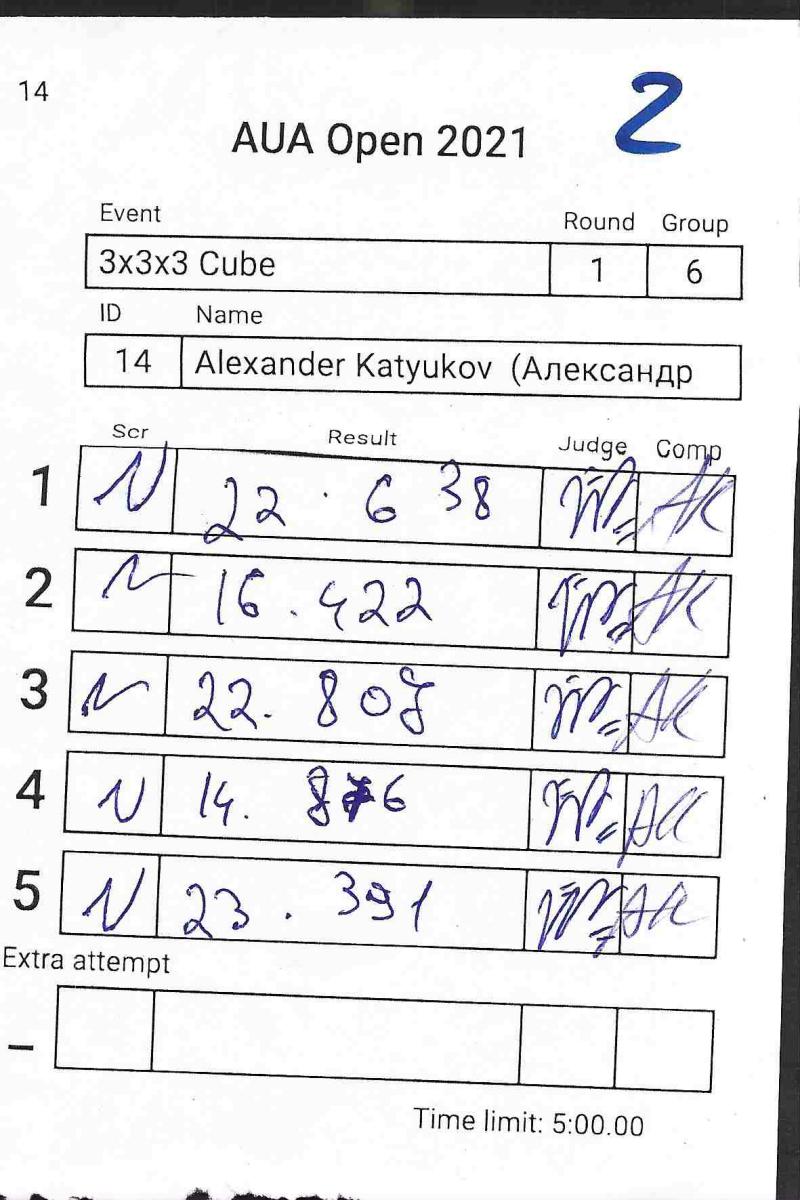 14
2
AUA Open 2021
Event Round Group
3x3x3 Cube 1 6
ID Name
14 Alexander Katyukov (Александр
Scr Result Judge Comp
1 N 22.638 AK
2 16.422 AK
3 22.807 AK
4 N 14. 8 6 AK
5 N 23.391 AK
Extra attempt
–
Time limit: 5:00.00